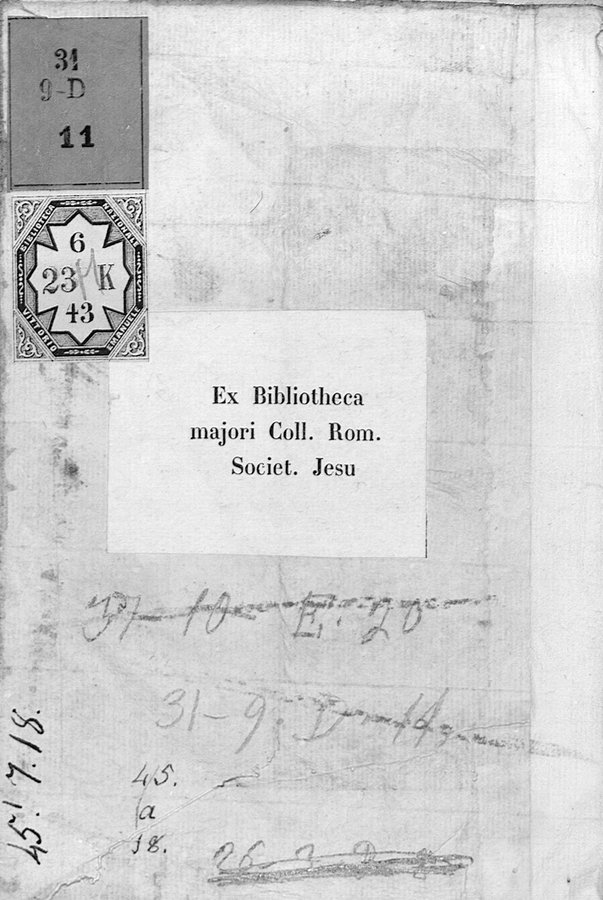 31
9-D
11
BIBLIOTECA NAZIONALE
6
23 K
43
VITTORIO EMANUELE
Ex Bibliotheca
majori Coll. Rom.
Societ. Jesu
10 E. 20
31-9. D
45.
a
18.
45. 7. 18.
26